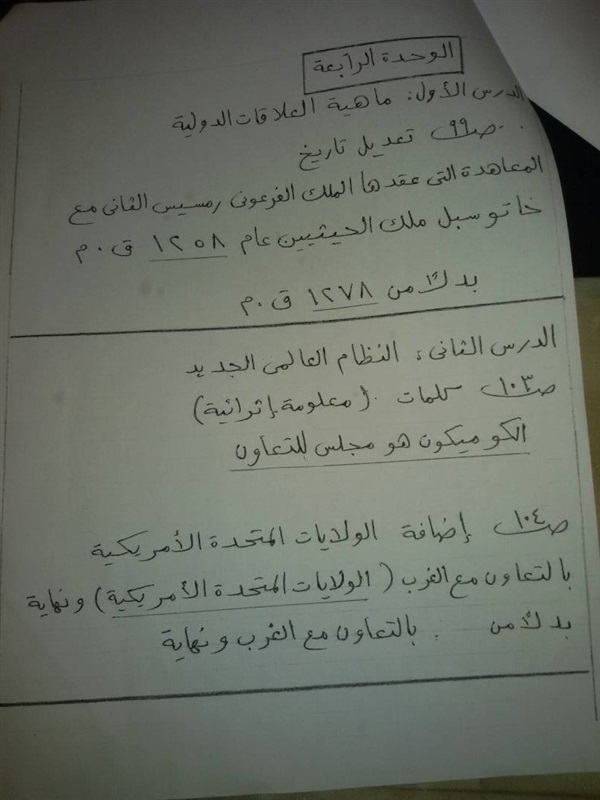 الوحدة الرابعة
الدرس الأول: ماهية العلاقات الدولية
ص٩٩ تعديل تاريخ
المعاهدة التى عقدها الملك الفرعونى رمسيس الثانى مع
خاتوسبل ملك الحيثيين عام ١٢٥٨ ق.م
بدلاً من ١٢٧٨ ق.م
الدرس الثانى: النظام العالمى الجديد
ص١٠٣ كلمات (معلومة إثرائية)
الكوميكون هو مجلس للتعاون
ص١٠٤ إضافة الولايات المتحدة الأمريكية
بالتعاون مع الغرب (الولايات المتحدة الأمريكية) ونهاية
بدلاً من بالتعاون مع الغرب ونهاية